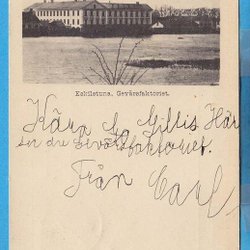 Eskilstuna. Gevärsfaktoriet.
Kära Gillis Här
ser du Gevärsfaktoriet.
Från Carl